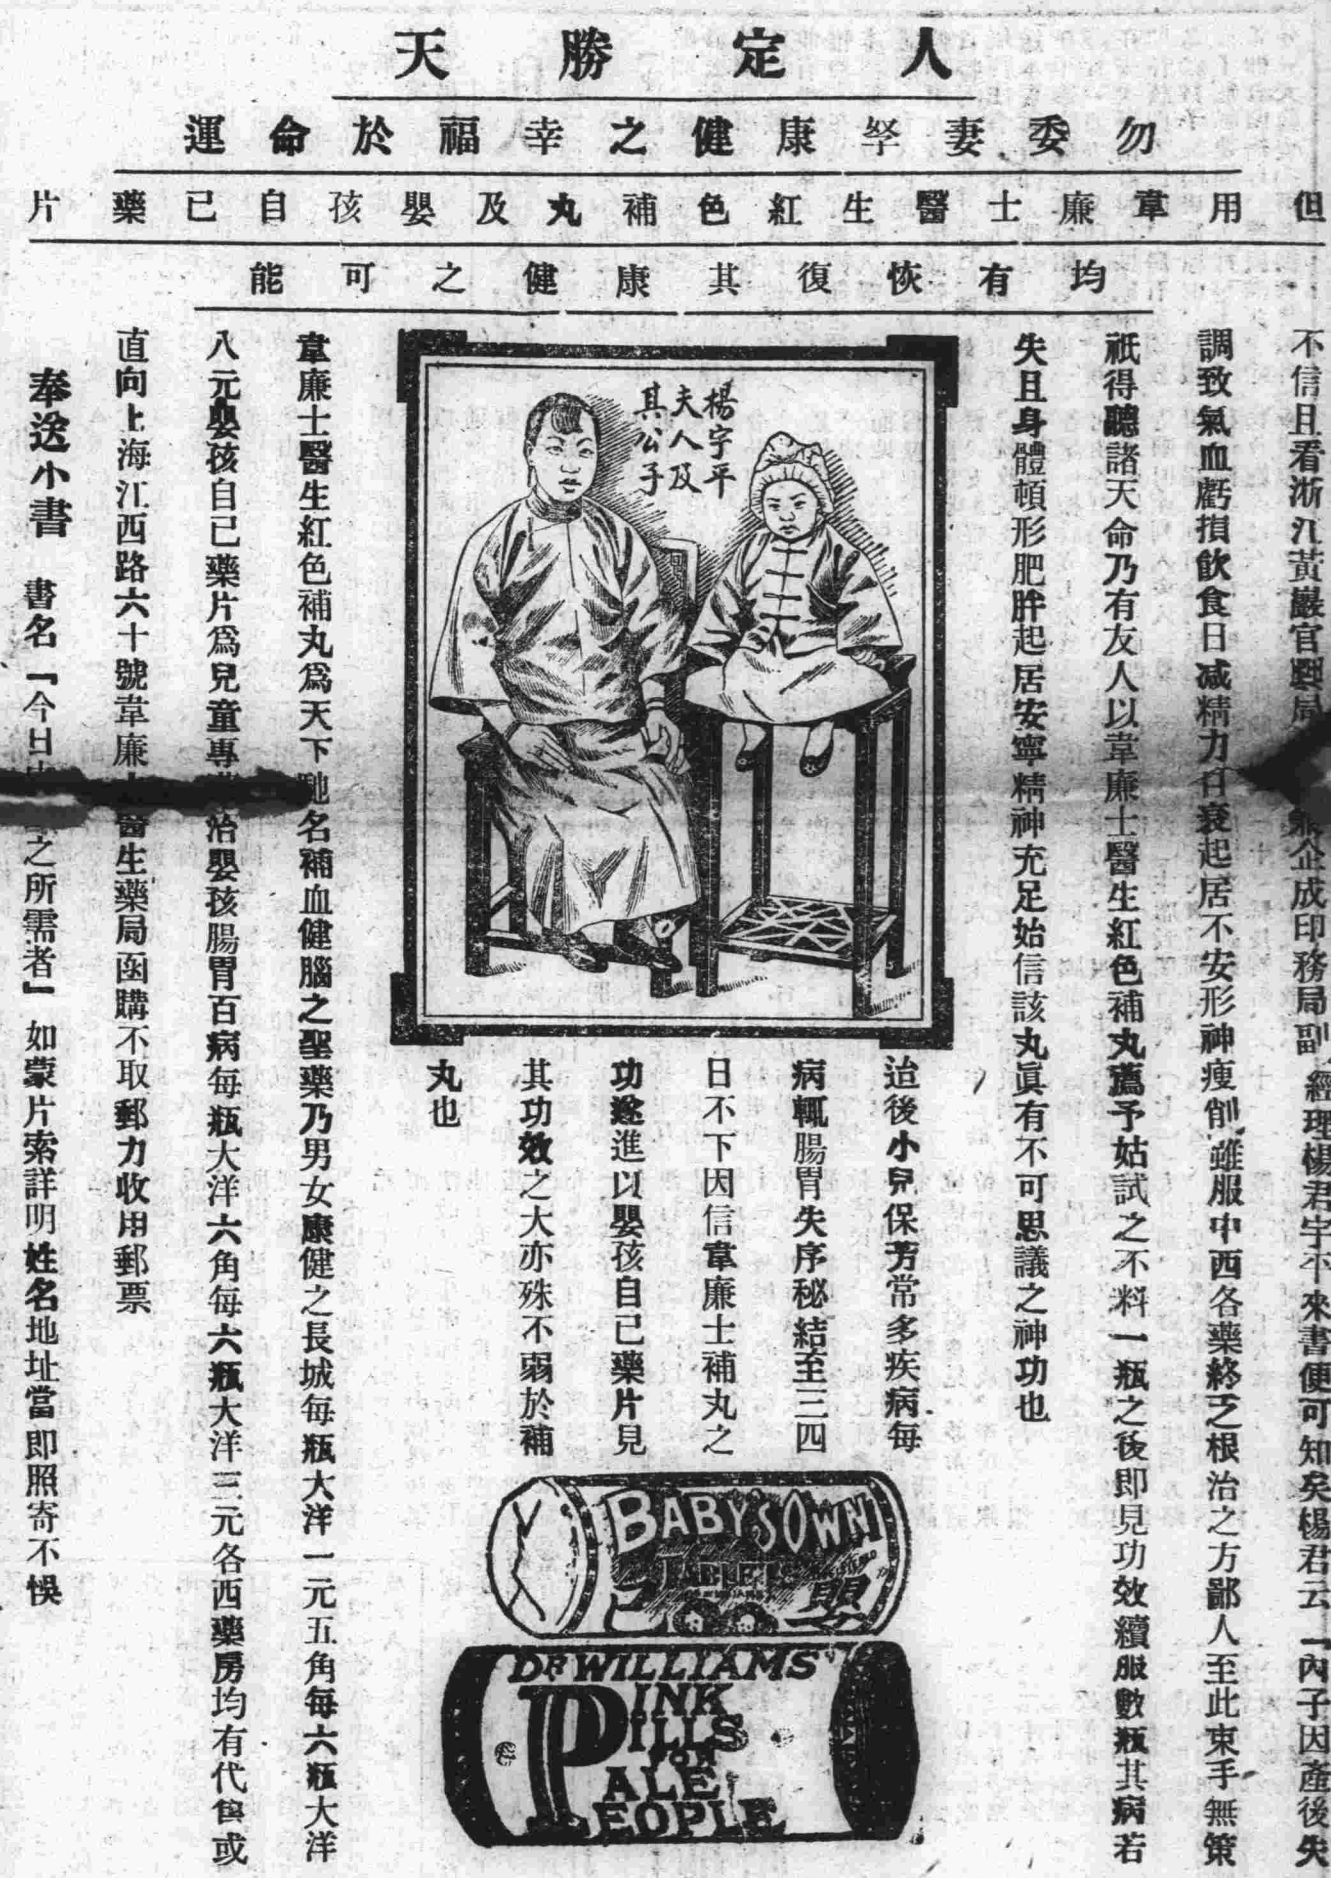 人定勝天
勿委妻孥康健之幸福於命運
但用韋廉士醫生紅色補丸及嬰孩自己藥片
均有恢復其康健之可能
不信且看浙江黃巖官產局 企成印務局副經理楊君宇平來書便可知矣楊君云「內子因產後失
調致氣血虧損飲食日减精力日衰起居不安形神瘦削雖服中西各藥終乏根治之方鄙人至此束手無策
祇得聽諸天命乃有友人以韋廉士醫生紅色補丸薦予姑試之不料一瓶之後即見功效續服數瓶其病若
失且身體頓形肥胖起居安寧精神充足始信該丸眞有不可思議之神功也
楊宇平
夫人及
其公子
迨後小兒保芳常多疾病每
病輒腸胃失序秘結至三四
日不下因信韋廉士補丸之
功遂進以嬰孩自己藥片見
其功效之大亦殊不弱於補
丸也
BABY'S OWN
TABLETS
嬰
DR WILLIAMS'
PINK
PILLS
FOR
PALE
PEOPLE
韋廉士醫生紅色補丸爲天下馳名補血健腦之聖藥乃男女康健之長城每瓶大洋一元五角每六瓶大洋
八元嬰孩自己藥片爲兒童專 治嬰孩腸胃百病每瓶大洋六角每六瓶大洋三元各西藥房均有代售或
直向上海江西路六十號韋廉士醫生藥局函購不取郵力收用郵票
奉送小書 書名「今日 之所需者」如蒙片索詳明姓名地址當即照寄不悞